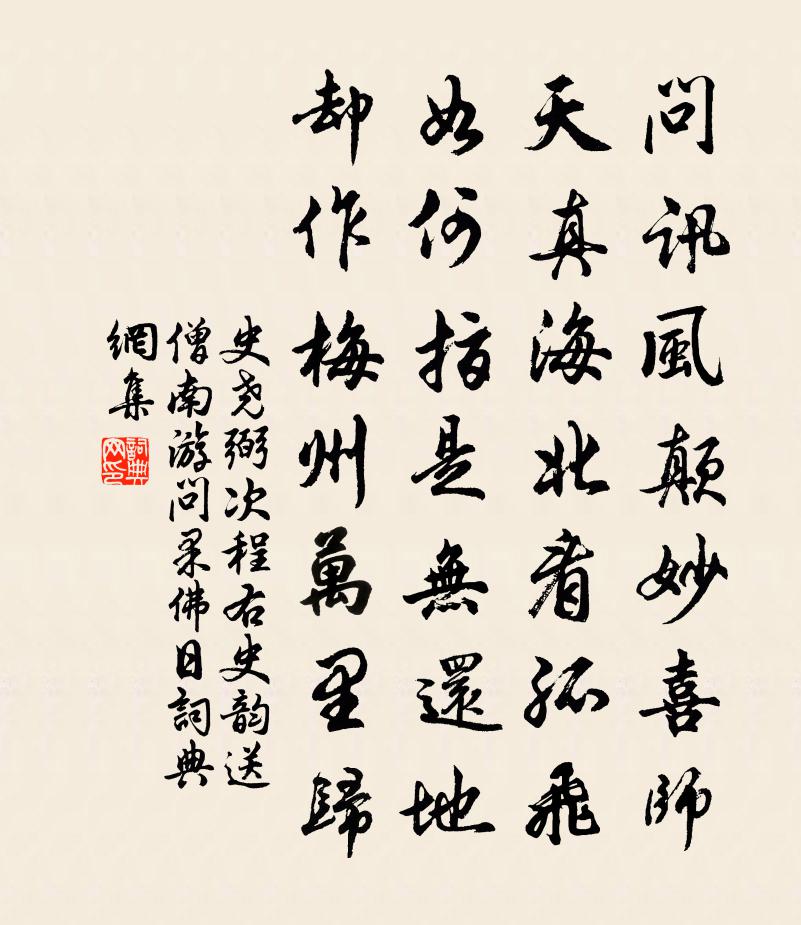 問訊風顛妙喜師
天真海北看孤飛
如何指是無還地
却作梅州萬里歸
史尧弼次程右史韵送
僧南游问杲佛日詞典
網集
詞典网印